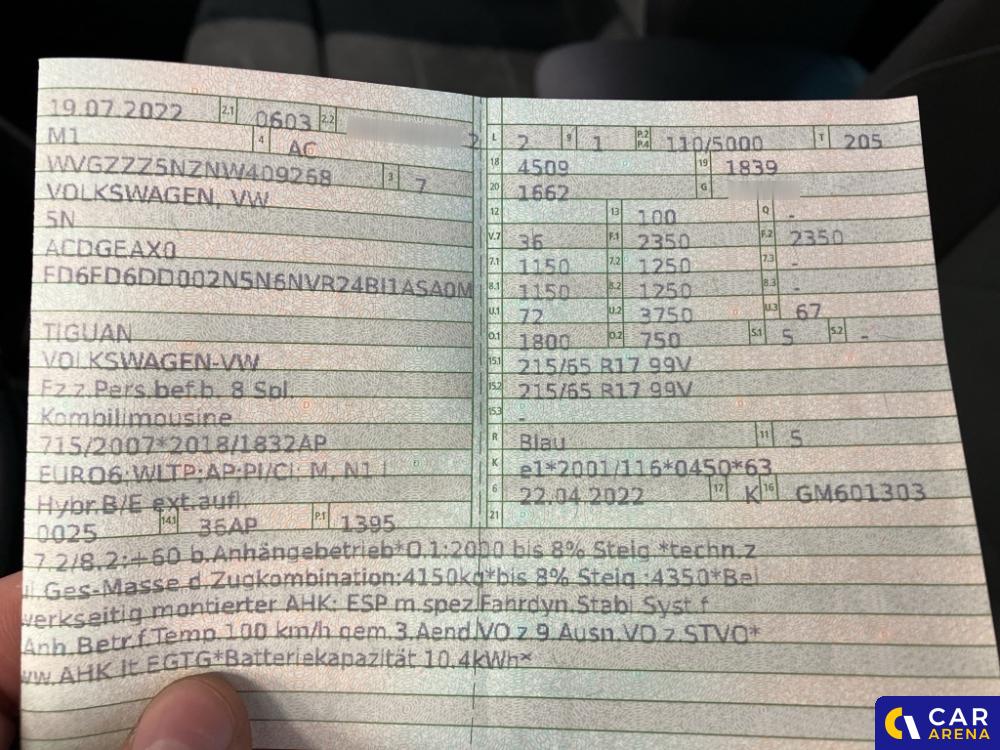 19.07.2022 2.1 0603 2.2 2
M1 4 AC
WVGZZZ5NZNW409268 3 7
VOLKSWAGEN, VW
5N
ACDGEAX0
FD6FD6DD002N5N6NVR24BI1ASA0M
TIGUAN
VOLKSWAGEN-VW
Fz.z.Pers.bef.b. 8 Spl.
Kombilimousine
715/2007*2018/1832AP
EURO6;WLTP;AP;PI/CI; M, N1 I
Hybr.B/E ext.aufl.
0025 14.1 36AP P.1 1395
L 2 9 1 P.2 P.4 110/5000 T 205
18 4509 19 1839
20 1662 G
12 - 13 100 Q -
V.7 36 F.1 2350 F.2 2350
7.1 1150 7.2 1250 7.3 -
8.1 1150 8.2 1250 8.3 -
U.1 72 U.2 3750 U.3 67
O.1 1800 O.2 750 S.1 5 S.2 -
15.1 215/65 R17 99V
15.2 215/65 R17 99V
15.3 -
R Blau 11 5
K e1*2001/116*0450*63
6 22.04.2022 17 K 16 GM601303
21
7.2/8.2:+60 b.Anhängebetrieb*O.1:2000 bis 8% Steig.*techn.z
ul.Ges-Masse d.Zugkombination:4150kg*bis 8% Steig.:4350*Bei
werkseitig montierter AHK: ESP m.spez.Fahrdyn.Stabi.Syst.f.
Anh.Betr.f.Temp.100 km/h gem.3.Aend.VO z.9.Ausn.VO z.STVO*
ww.AHK lt.EGTG*Batteriekapazität 10.4kWh*
CAR
ARENA